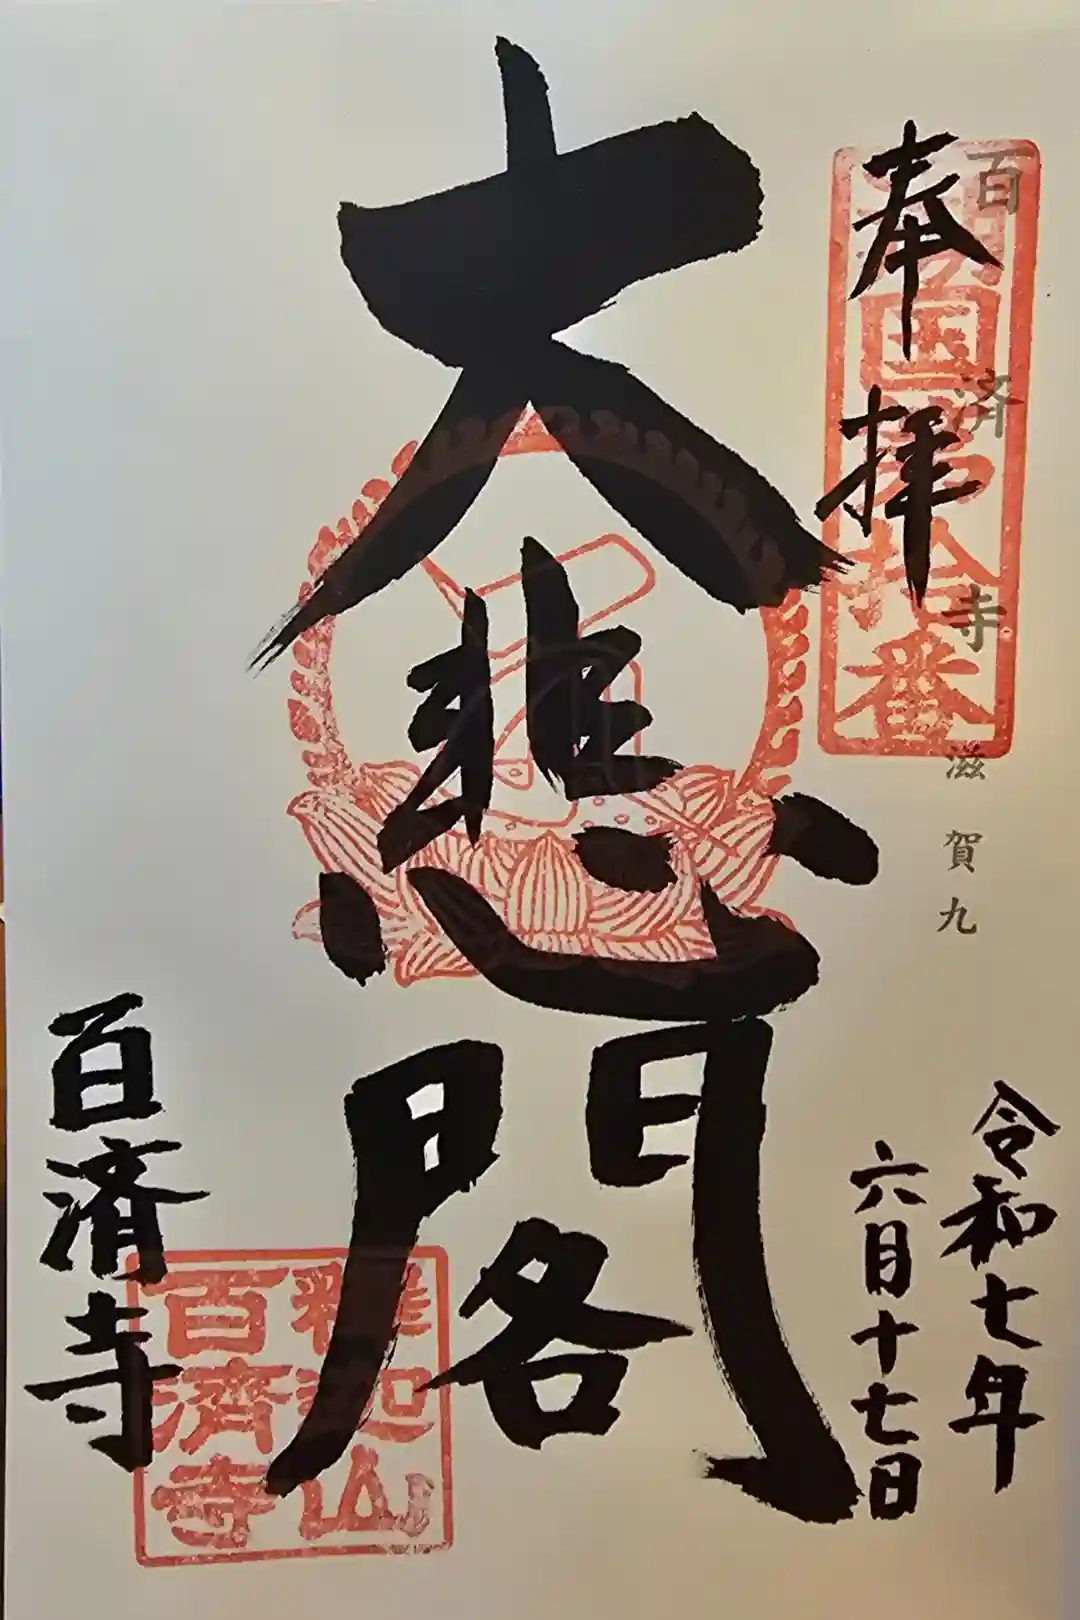 百済寺 滋賀九
奉拝
国第拾番
令和七年
六月十七日
大悲閣
百済寺
釋迦山
百濟寺